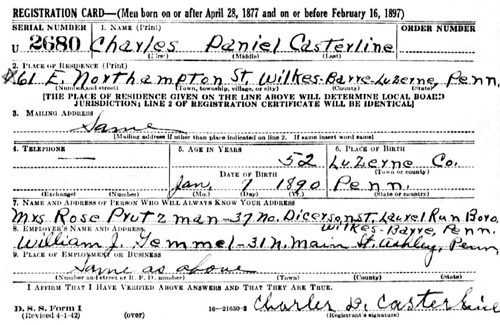 REGISTRATION CARD—(Men born on or after April 28, 1877 and on or before February 16, 1897)
SERIAL NUMBER 1. NAME (Print) ORDER NUMBER
U 2680 Charles Daniel Casterline
(First) (Middle) (Last)
2. PLACE OF RESIDENCE (Print)
61 E. Northampton St. Wilkes-Barre-Luzerne, Penn.
(Number and street) (Town, township, village, or city) (County) (State)
[THE PLACE OF RESIDENCE GIVEN ON THE LINE ABOVE WILL DETERMINE LOCAL BOARD
JURISDICTION; LINE 2 OF REGISTRATION CERTIFICATE WILL BE IDENTICAL]
3. MAILING ADDRESS
Same
[Mailing address if other than place indicated on line 2. If same insert word same]
4. TELEPHONE 5. AGE IN YEARS 6. PLACE OF BIRTH
52 Luzerne Co.
DATE OF BIRTH (Town or county)
Jan. 7 1890 Penn.
(Exchange) (Number) (Mo.) (Day) (Yr.) (State or country)
7. NAME AND ADDRESS OF PERSON WHO WILL ALWAYS KNOW YOUR ADDRESS
Mrs Rose Prutzman-37 No. Dicerson St. Laurel Run Boro,
8. EMPLOYER'S NAME AND ADDRESS Wilkes-Barre, Penn.
William J. Temmel-31 N. Main St. Ashley, Penn
9. PLACE OF EMPLOYMENT OR BUSINESS
Same as above
(Number and street or R. F. D. number) (Town) (County) (State)
I AFFIRM THAT I HAVE VERIFIED ABOVE ANSWERS AND THAT THEY ARE TRUE.
D. S. S. Form 1 Charles D. Casterline
(Revised 4-1-42) (over) 16—21630-2 (Registrant's signature)